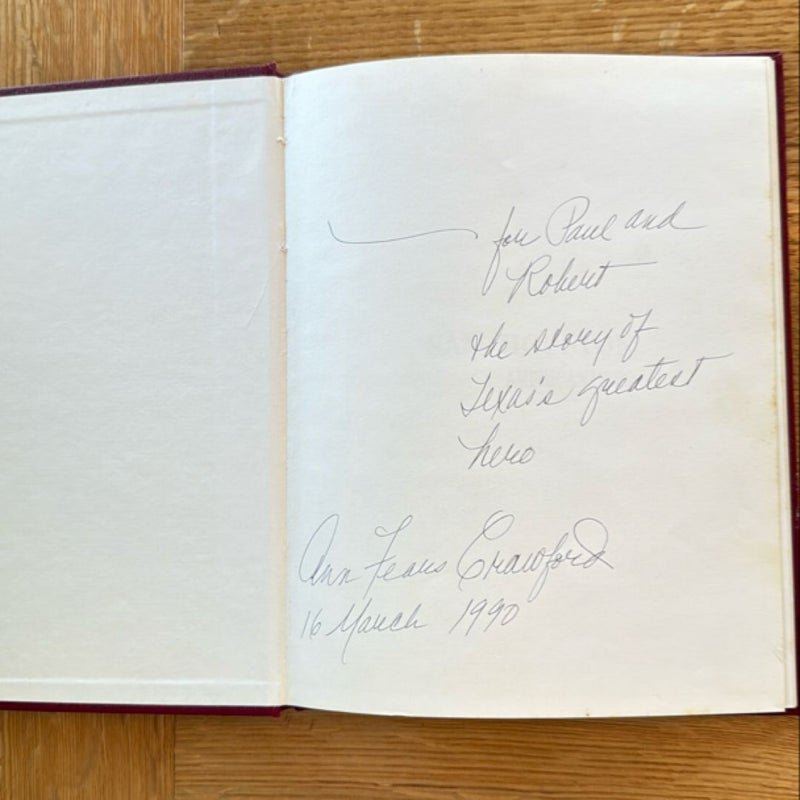 for Paul and
Robert
the story of
Texas's greatest
hero
Ann Fears Crawford
16 March 1990